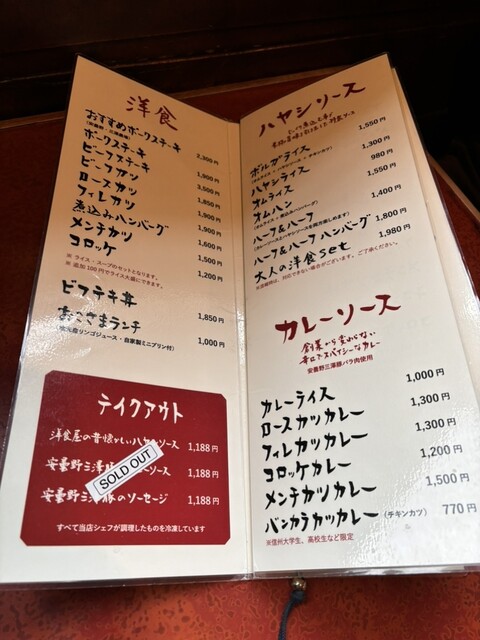 洋食
おすすめポークステーキ 2,300円
ポークステーキ 1,900円
ビーフステーキ 3,000円
ビーフカツ 1,800円
ロースカツ 1,900円
フィレカツ 1,900円
煮込みハンバーグ 1,600円
メンチカツ 1,500円
コロッケ 1,200円
※ ライス・スープのセットとなります。
※ 追加100円でライス大盛にできます。
ビフテキ丼 1,850円
お子さまランチ 1,000円
リンゴジュース・自家製ミニプリン付)
テイクアウト
洋食屋の昔懐かしいハヤシソース 1,188円
安曇野三澤豚 ソース 1,188円
SOLD OUT
安曇野三澤豚のソーセージ 1,188円
すべて当店シェフが調理したものを冷凍しています
ハヤシソース
ボルガライス 1,550円
ハヤシライス 1,300円
オムライス 980円
オムハン 1,550円
ハーフ&ハーフ 1,400円
ハーフ&ハーフハンバーグ 1,800円
大人の洋食set 1,980円
カレーソース
創業から変わらない
辛口でスパイシーなカレー
安曇野三澤豚バラ肉使用
カレーライス 1,000円
ロースカツカレー 1,300円
フィレカツカレー 1,300円
コロッケカレー 1,200円
メンチカツカレー 1,500円
バンカラカツカレー (チキンカツ) 770円
※信州大学生、高校生など限定